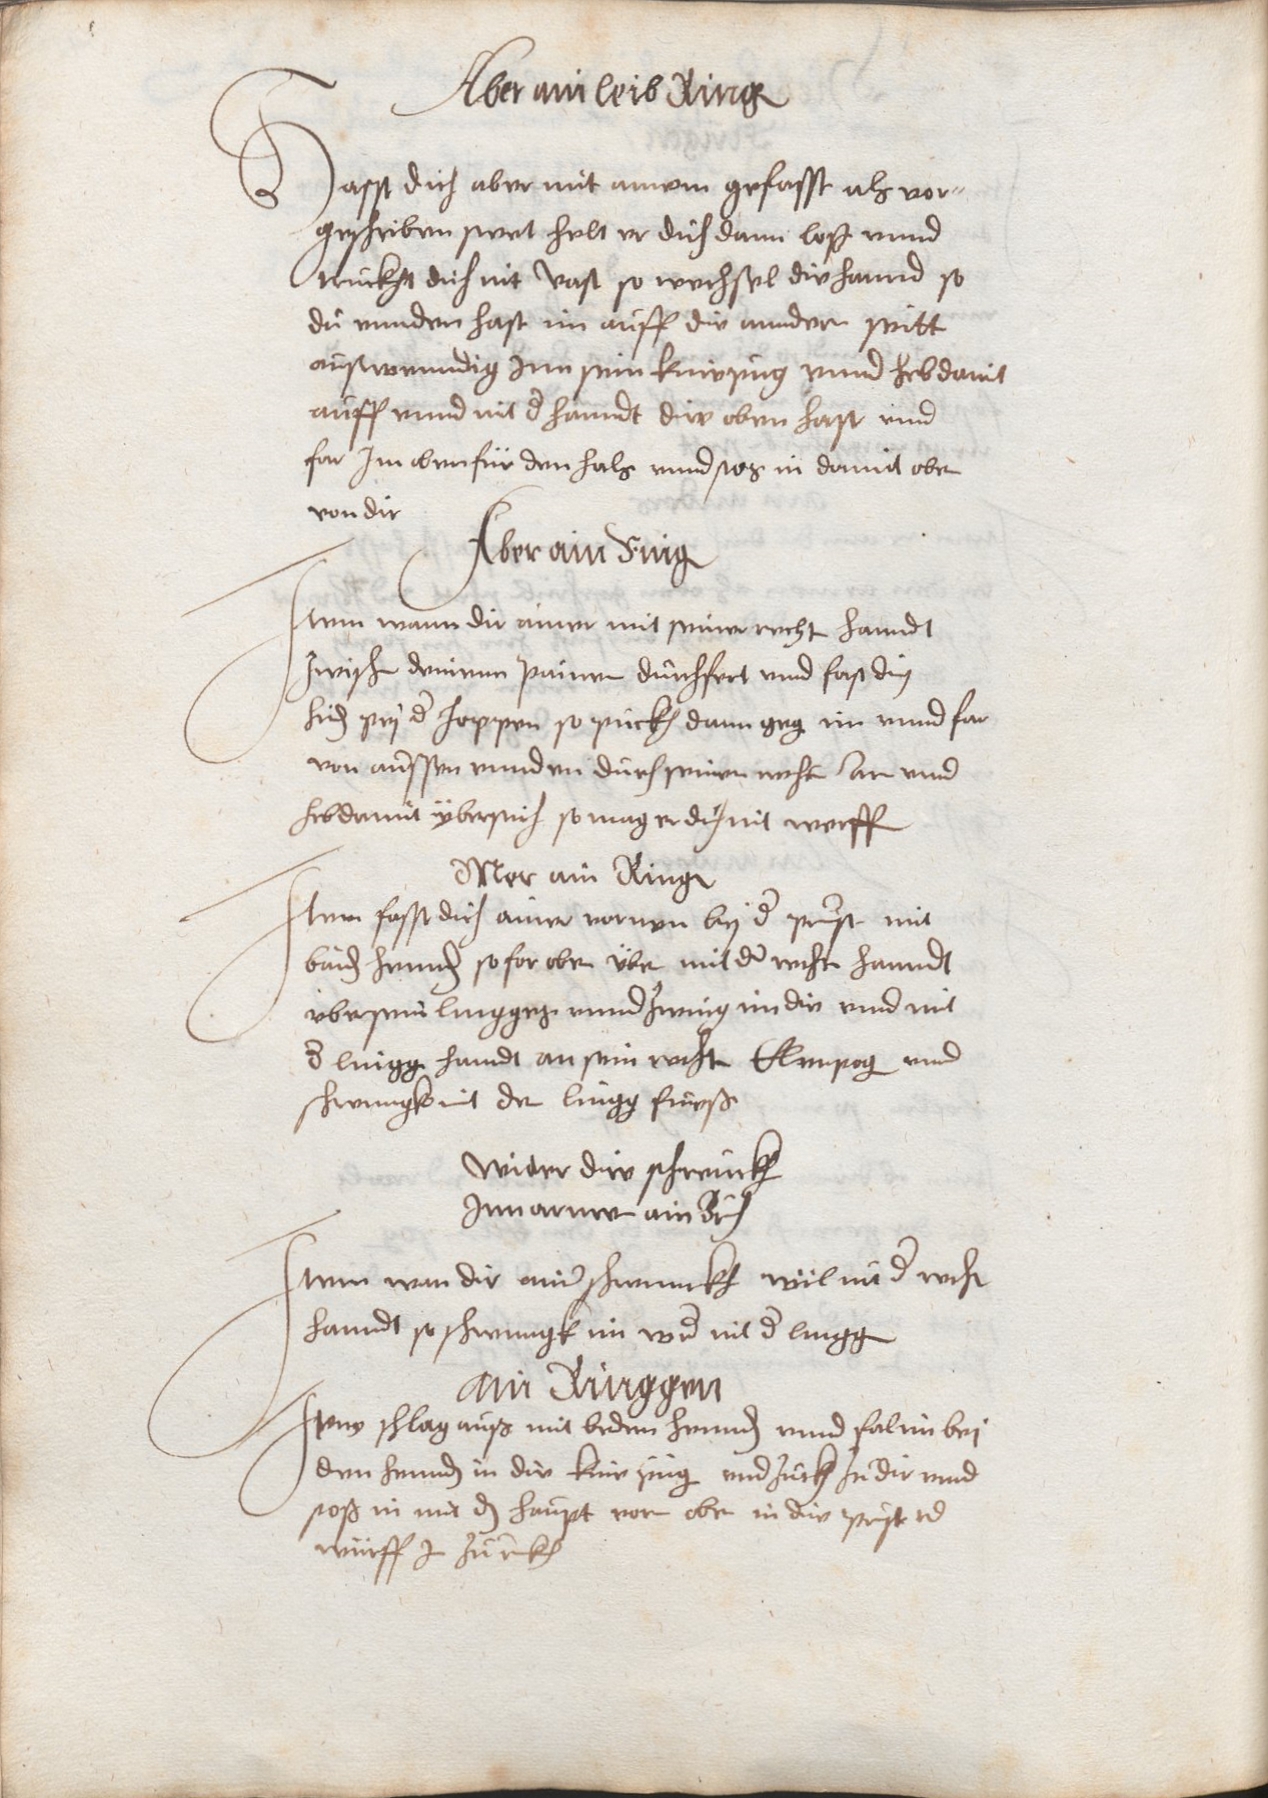 Aber ain leib Ring
Hasst dich aber mit ainem gefasst als vor-
geschriben stet helt er dich dann loß vnnd
truckht dich nit vast so wechsel die hannd so
du vnnden hast im auff die annder seitt
auswenndig Inn sein kniepüg vnnd heb damit
auff vnnd mit d hanndt die oben hast vnnd
far Im oben für den hals vnnd stos in damit obe
von dir
Aber ain Ring
Item wann dir ainer mit seiner recht hanndt
zwisch deinenn painen durchfert vnd fast dich
hind pey d Joppen so puckh dann geg im vnnd far
von aussen vnnden durch seinen recht arm vnd
heb damit übersich so mag er dich nit werff
Mer ain Ring
Item fasst dich ainer vornen bey d prust mit
baid hennd so far obe übe mit d recht hanndt
über sein lingge vnnd zwing im die vnd mit
d lingg handt an sein recht Elenpog vnd
schwungk mit der lingg fueß
Wider die schrenckh
Inn arme ain Bruch
Item wan dir ainer schrenckh wil mit d recht
hanndt so schrenngk im wid mit d lingg
Ain Ringgen
Item schlag auß mit beden hennd vnnd fal im bey
den hennd in die knie püg vnd zuckh zu dir vnnd
stoß in mit dem haupt vor obe in die prust vnd
würff In zuruckh